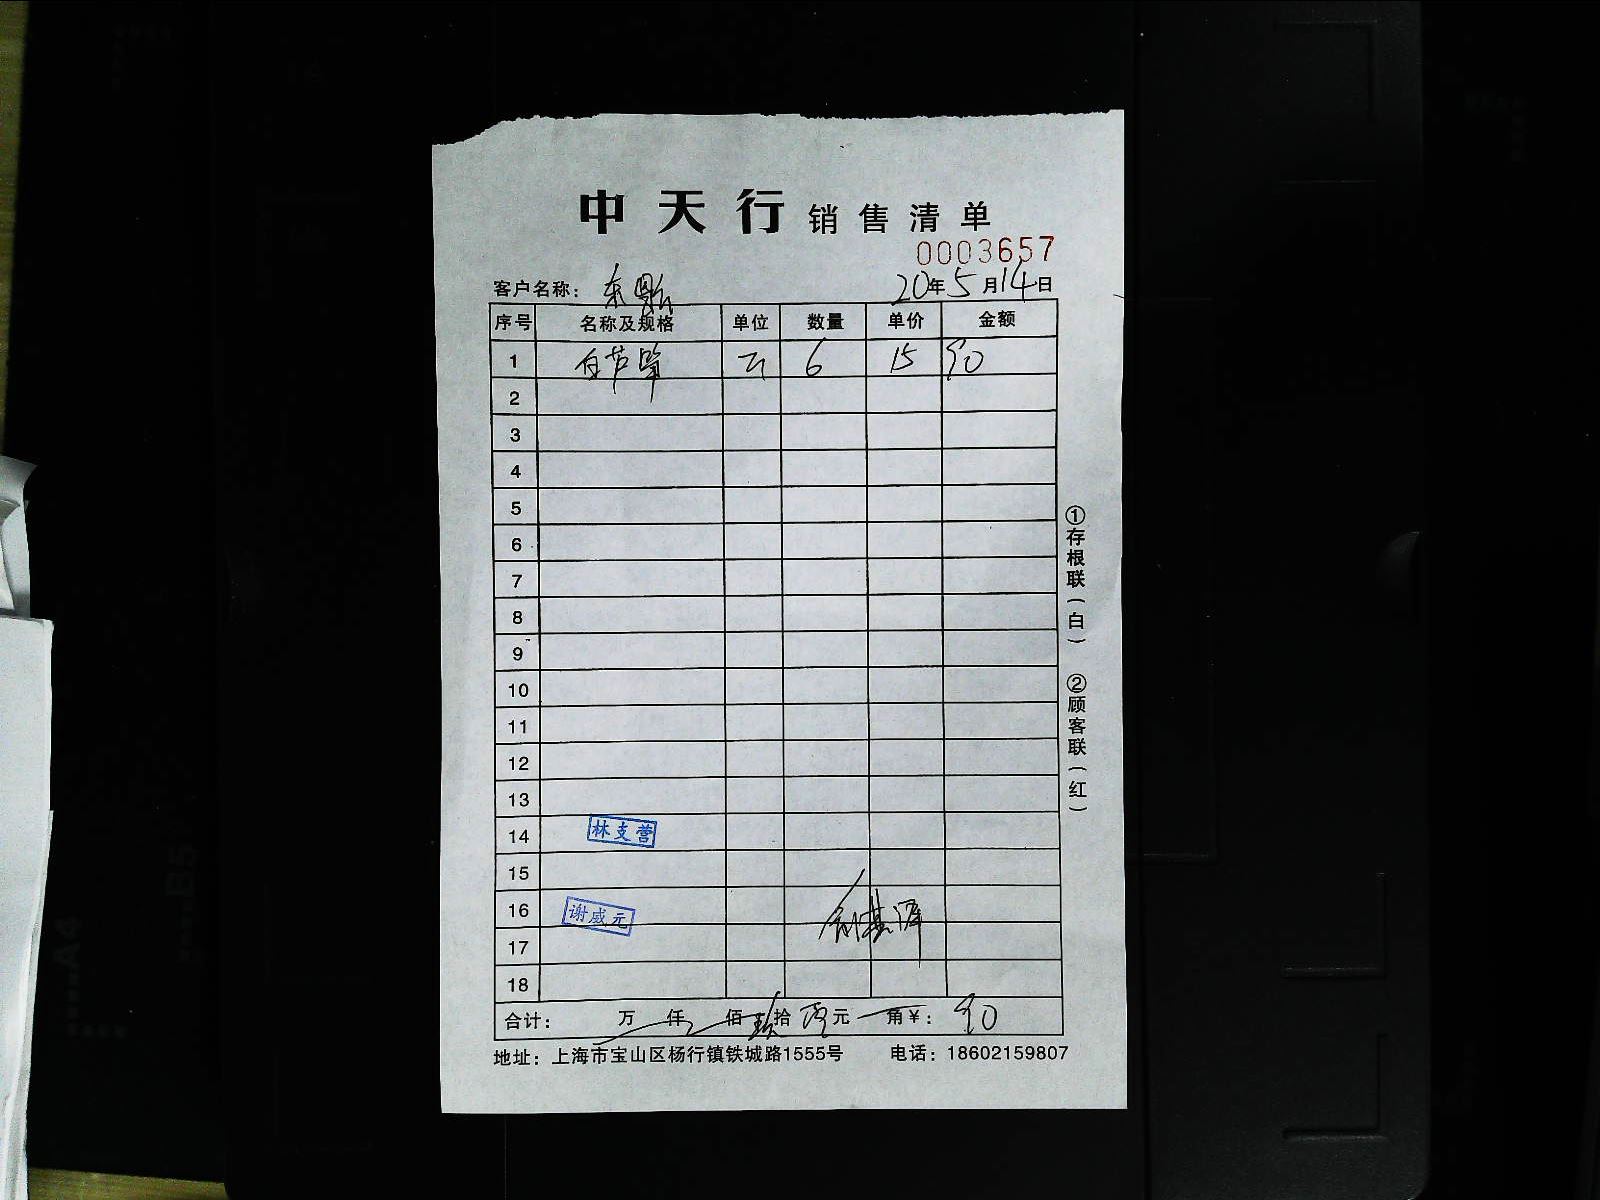 中天行销售清单
0003657
客户名称： 20年5月14日
序号 名称及规格 单位 数量 单价 金额
1 白芦笋 6 15 90
2
3
4
5
6
7
8
9
10
11
12
13
14 林支营
15
16 谢威元
17
18
合计： 万 仟 佰 玖拾 元 角￥： 90
地址：上海市宝山区杨行镇铁城路1555号 电话：18602159807
①存根联（白） ②顾客联（红）